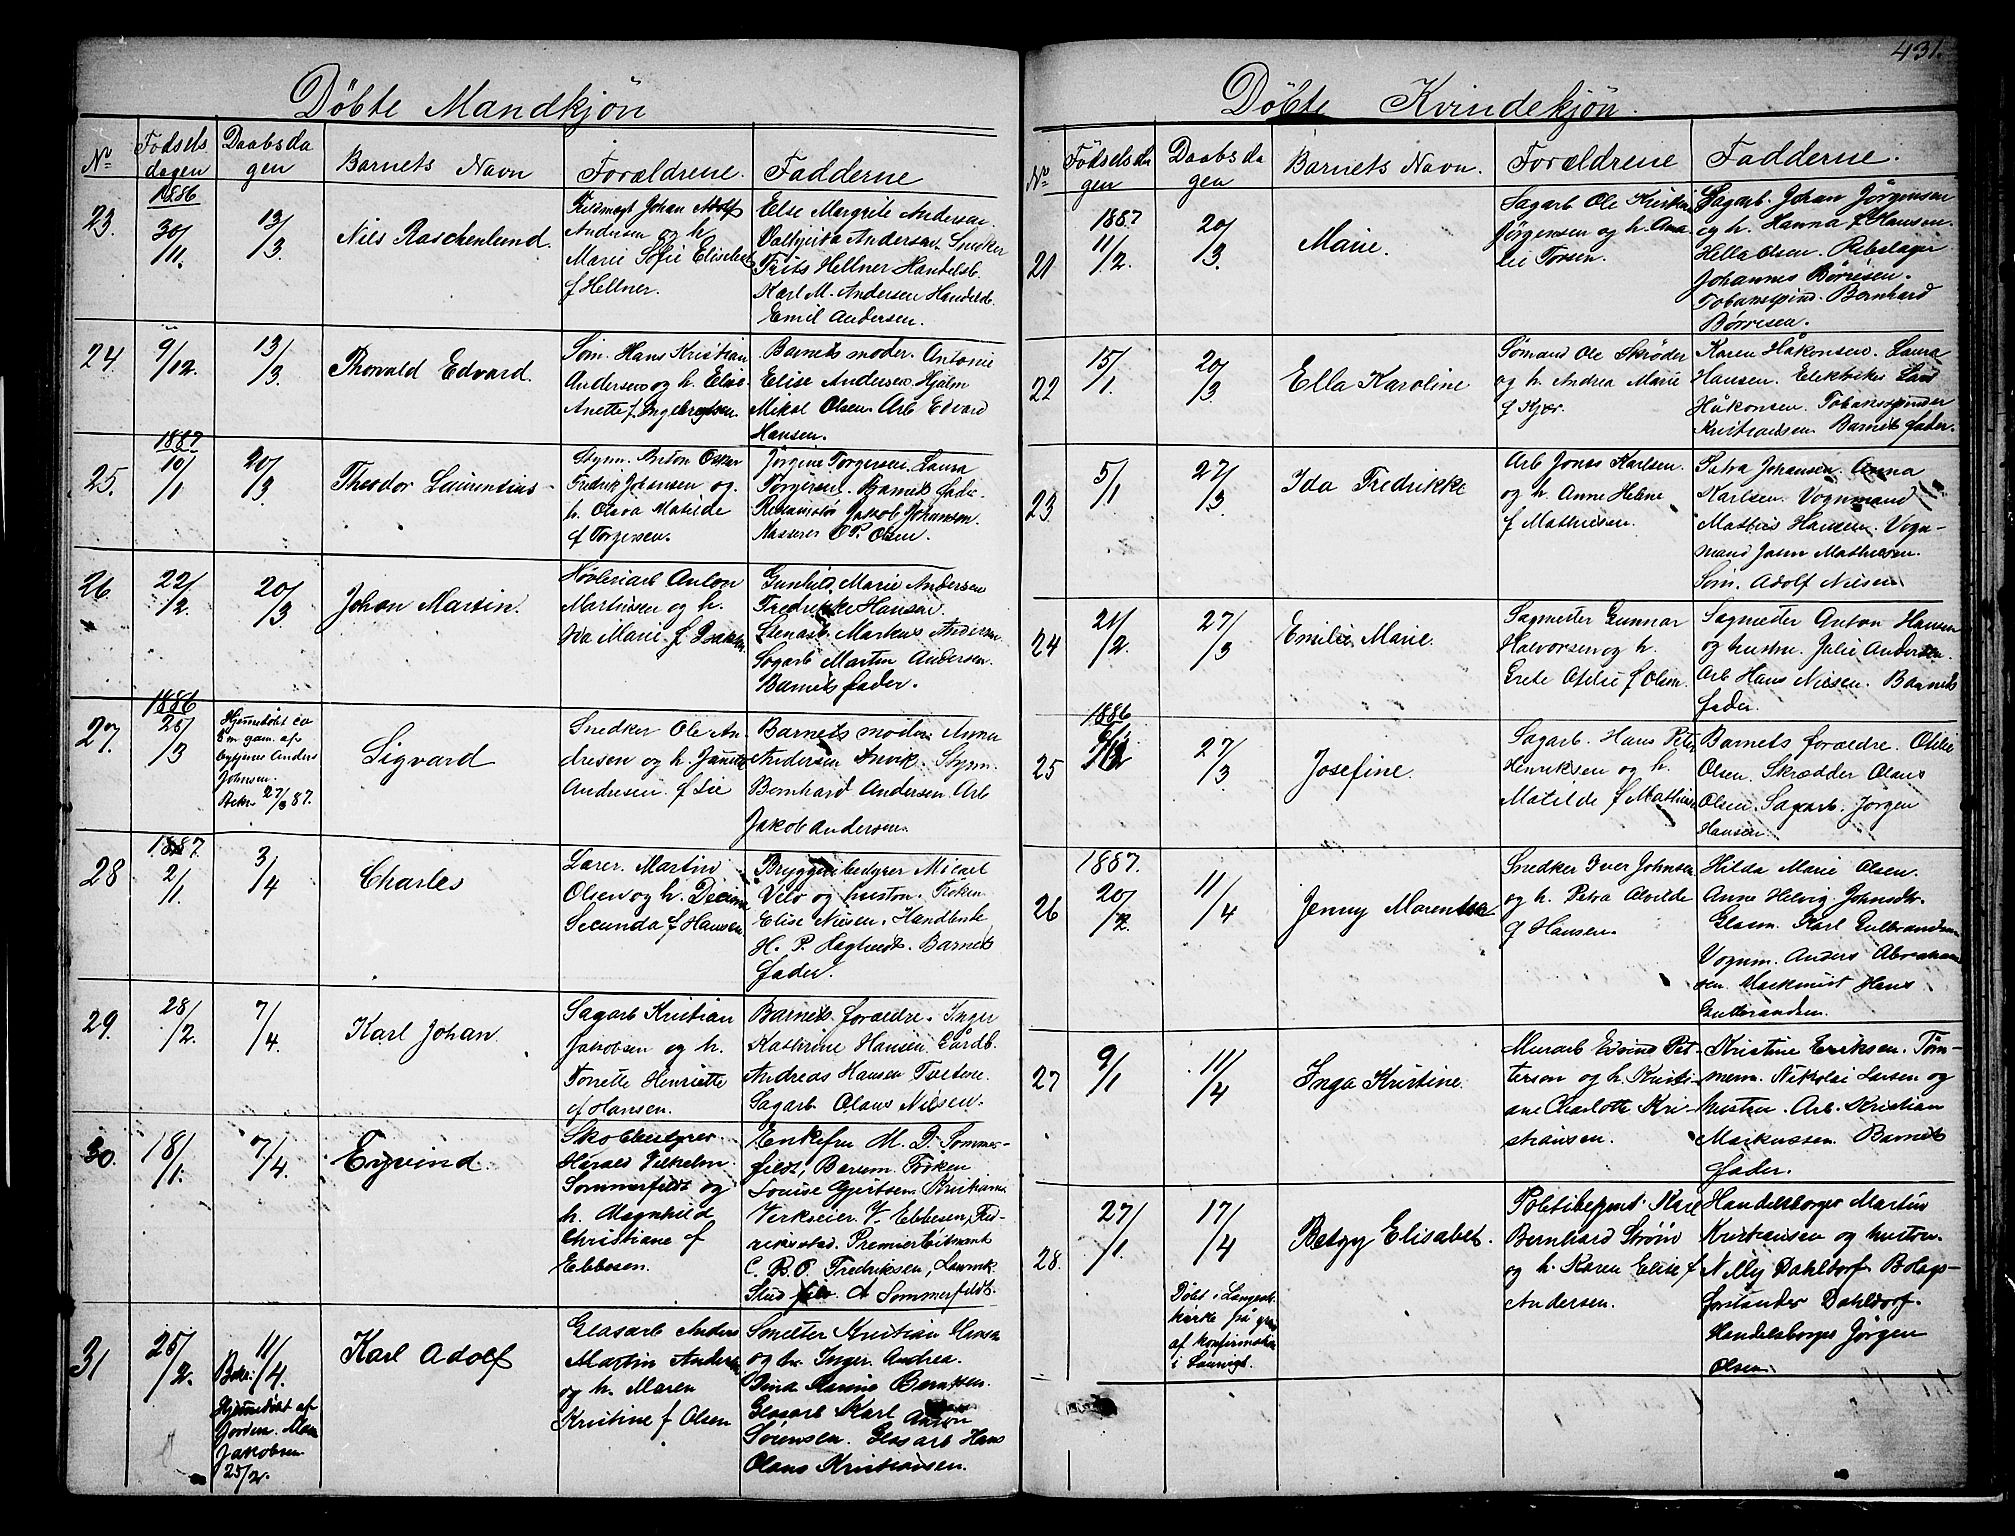 431.
Döbte Mandkjön
No
Födsels
dagen
Daabsda
gen
Barnets Navn
Forældrene.
Fadderne
23.
1886
30/11.
13/3
Nils Raschenlund.
Johan Adolf
Andersen og h.
Marie Sofie Elisebet
f Hellner.
Else Margrite Andersen
Andersen. Snedker
Frits Hellner Handelsb.
Karl M. Andersen Handelsb.
Emil Andersen.
24.
9/12.
13/3
Thorvald Edvard.
Söm. Hans Kristian
Andersen og h. Elise
Anette f. Ingebregtsen.
Barnets moder. Antonie
Elise Andersen. Hjalm
Mikal Olsen. Arb Edvard
Hansen.
25.
1887
10/1
20/3
Theodor Laurentius
Styrm. Anton Oskar
Fredrik Johansen og
h. Olava Matilde
f Torgersen.
Jörgine Torgersen. Laura
Torgersen. Barnets fader.
Jakob Johansen.
O. P. Olsen.
26.
22/2.
20/3
Johan Martin.
Hövleriarb Anton
Martinsen og h.
Ida Marie f
Gunhild Marie Andersen
Fredrikke Hansen.
Stenarb. Markus Andersen
Sagarb Martin Andersen.
Barnets fader.
27.
1886
25/3
Hjemmedöbt ca
8 m. gam. af
Anders
Johnsen.
Bekr 27/3 87.
Sigvard
Snedker Ole An
dresen og h. Janette
Andresen f Lie
Barnets moder. Anna
Andersen Styrm.
Bernhard Andersen. Arb
Jakob Andersen.
28
1887.
2/1
3/4
Charles
Lærer. Martin
Olsen og h. Decima
Secunda f Hansen
Bryggeribestyrer Mikael
Velo og hustru. Fröken
Elise Nielsen. Handlende
H. P. Hagtvedt. Barnets
fader.
29.
28/2.
7/4.
Karl Johan.
Sagarb Kristian
Jakobsen og h.
Tonette Henriette
f Hansen.
Barnets forældre. Inger
Kathrine Hansen. Gårdb.
Andreas Hansen
Sagarb Olaus Nilsen.
30.
18/1.
7/4.
Eyvind.
Skolbestyrer
Harald Vilhelm
Sommerfeldt og
h. Magnhild
Christiane f
Ebbesen.
Enkefru M. D. Sommer-
feldt, Bærum. Fröken
Louise Gjertsen Kristiania
Verkseier V. Ebbesen, Fred-
rikstad. Premierlöitnant
C. B. P. Fredriksen, Laurvik
Stud A Sommerfeldt.
31
25/2.
Bekr. 11/4.
Hjemmedöbt af
Jordm. Mam
Jakobsen
25/2.
Karl Adolf
Glasarb Anders
Martin Andersen
og h. Maren
Kristine f Olsen
Smelter Kristian
og h. Inger Andrea.
Berntsen.
Glasarb Karl Anton
Sörensen. Glasarb Hans
Olaus Kristiansen.
Döbte Kvindekjön.
No
Födselsda
gen
Daabsda
gen
Barnets Navn.
Forældrene
Fadderne.
21
1887
11/2.
20/3.
Marie.
Sagarb Ole Kristian
Jörgensen og h. Ama
lie Torsen.
Sagarb. Johan Jörgensen
og h. Hanna f Hansen.
Hella Olsen. Rebslager
Johannes Börresen.
Tobaksspind. Bernhard
Börresen.
22
15/1.
20/3
Ella Karoline
Sömand Ole Skröder
og h. Andrea Marie
f Kjær.
Karen Håkonsen. Laura
Hansen. Elektriker
Håkonsen. Tobaksspinder
Kristiansen Barnets fader.
23.
5/1
27/3
Ida Fredrikke
Arb Jonas Karlsen
og h. Anne Helene
f Mathisen.
Petra Johansen. Anna
Karlsen. Vognmand
Mathis Hansen. Vogn-
mand Johan Mathisen.
Söm. Adolf Nilsen
24
21/2.
27/3
Emilie Marie.
Sagmester Gunnar
Halvorsen og h.
Grete Otilie f Olsen.
Sagmester Anton Hansen
og hustru. Julie Andersen.
Arb Hans Nilsen. Barnets
fader.
25
1886
27/3
Josefine.
Sagarb. Hans Peter
Henriksen og h.
Matilde f Mathisen
Barnets forældre. Otilie
Olsen. Skrædder Olaus
Olsen. Sagarb. Jörgen
Hansen.
26
1887.
20/2.
11/4
Jenny Marentse
Snedker Iver Johnsen
og h. Petra Alvilde
f Hansen.
Hilda Marie Olsen.
Anne Helvig
Glasm. Karl Gulbrandsen
Vognm. Anders Abraham
sen. Maskinist Hans
Gulbrandsen.
27
9/1
11/4
Inga Kristine.
Murarb Edvind Pet-
terson og h. Kristi-
ane Charlotte Kri-
stiansen.
Kristine Eriksen. Töm-
merm. Nikolai Larsen og
hustru. Arb. Kristian
Markussen. Barnets
fader.
28.
27/1.
17/4
Döbt i Langest.
kirke på grund
af konfirmation
i Laurvigk.
Betzy Elisabet.
Politibetjent Karl
Bernhard Ström
og h. Karen Elise f
Andersen.
Handelsborger Martin
Kristiansen og hustru.
Nelly Dahldorf. Bolags-
forstander Dahldorf.
Handelsborger Jörgen
Olsen.